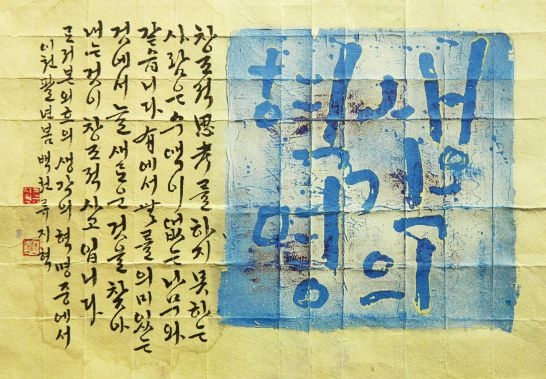 생각의
혁명
창조적 思考를 하지 못하는
사람은 수액이 없는 나무와
같습니다. 有에서 의미있는
것에서 늘 새로운 것을 찾아
내는 것이 창조적 사고입니다.
로저본외흐의 생각의 혁명 중에서
이천팔년봄 류지혁